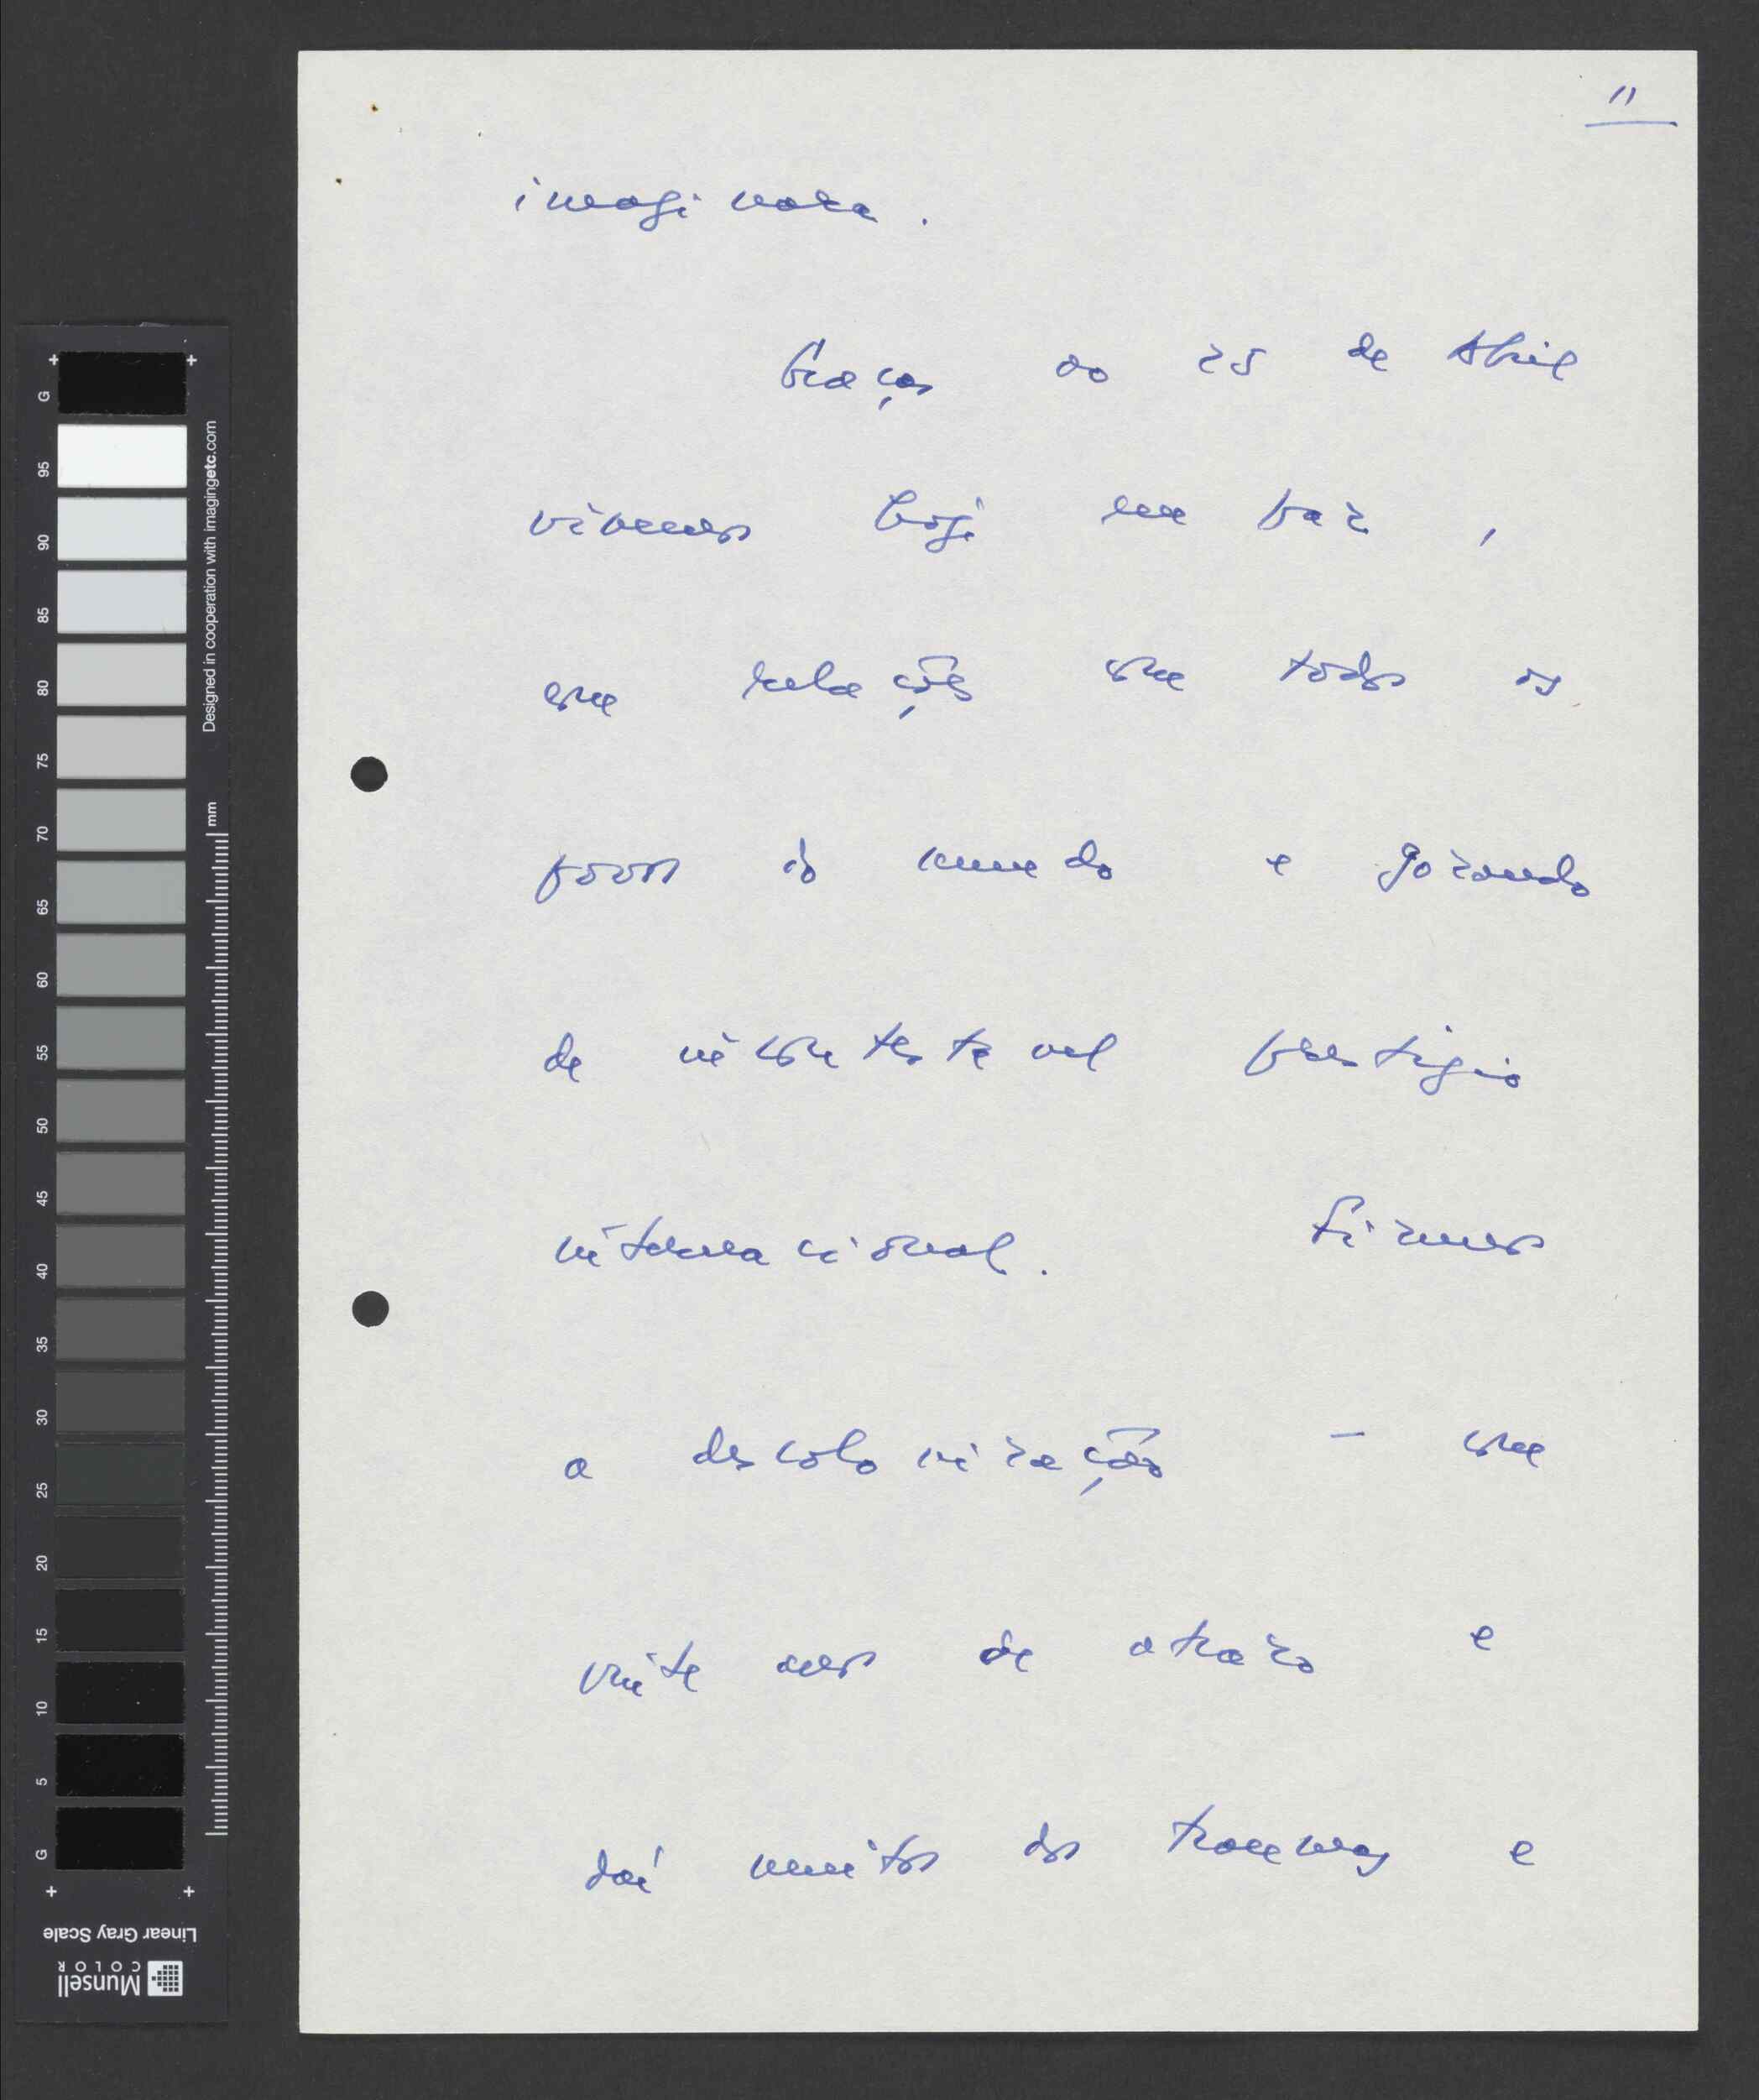 11
imaginara.
Graças ao 25 de Abril
vivemos hoje em paz,
com relações com todos os
povos do mundo e gozando
de incontestável prestígio
internacional. Fizemos
a descolonização - com
vinte anos de atrazo e
daí muitos dos traumas e
G
95
90
85
80
75
70
65
60
55
50
45
40
35
30
25
20
15
10
5
G
Designed in cooperation with imagingetc.com
mm
Linear Gray Scale
Munsell
COLOR